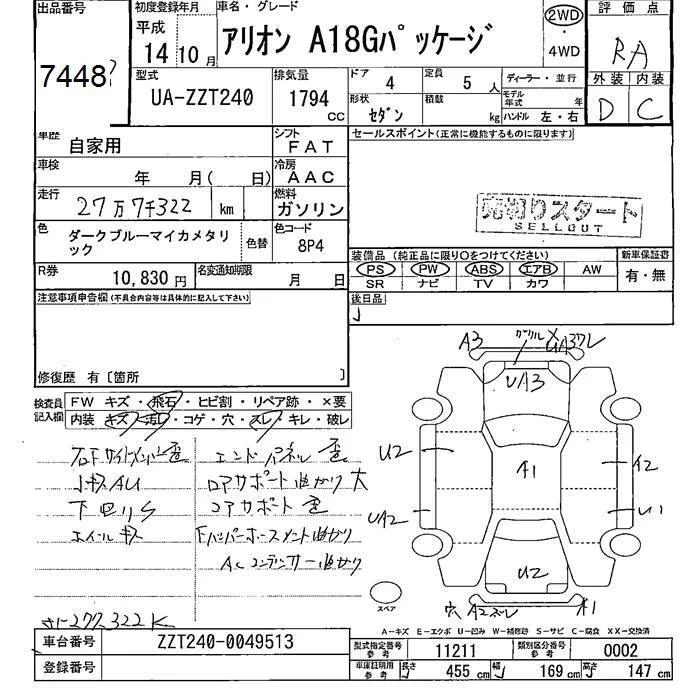 出品番号 初度登録年月 車名・グレード 2WD 評価点
平成 14 10月 アリオン A18Gパッケージ ・ 4WD RA
7448 型式 排気量 ドア 4 定員 5人 ディーラー・並行 外装 内装
UA-ZZT240 1794 cc 形状 セダン 積載 kg モデル年式 年 D C
ハンドル 左・右
車歴 自家用 シフト FAT セールスポイント(正常に機能するものに限ります)
車検 年 月( 日) 冷房 AAC
走行 27万7千322 km 燃料 ガソリン
売切りスタート
SELLOUT
色 ダークブルーマイカメタリック 色替 色コード 8P4
装備品(純正品に限り○をつけてください) 新車保証書
PS PW ABS エアB AW 有・無
SR ナビ TV カワ
R券 10,830円 名変通知期限 月 日
後日品
注意事項申告欄(不具合内容等は具体的に記入して下さい)
修復歴 有〔箇所 〕
A3 X UA3ワレ
UA3
検査員記入欄 FW キズ・飛石・ヒビ割・リペア跡・×要
内装 キズ・汚レ・コゲ・穴・スレ・キレ・破レ
U2 A1 A2
UA2 U1
右Fサイドメンバー歪 エンドパネル歪
小キズAU ロアサポート曲がり大
下回りS コアサポート歪
ホイールキズ Fバンパーホースメント曲がり
ACコンデンサー曲がり
U2
スペア 穴 A2ズレ A1
277,322K
A-キズ E-エクボ U-凹み W-補修跡 S-サビ C-腐食 XX-交換済
車台番号 ZZT240-0049513 型式指定番号 参考 11211 類別区分番号 参考 0002
登録番号 車庫証明用 参考 長さ 455cm 幅 169cm 高さ 147cm